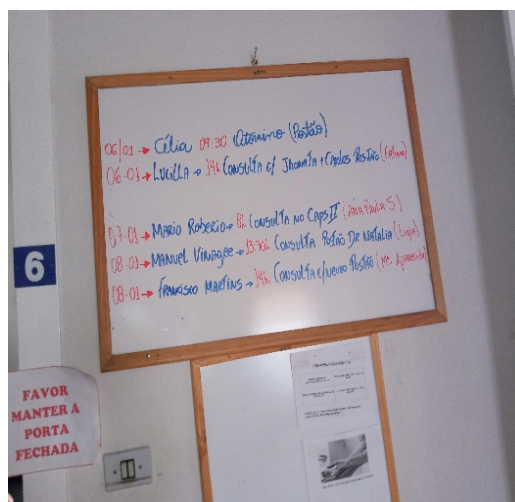 06/01 → Célia 09:30 Otorrino (Postão)
06-01 → LUCILLA → 14h CONSULTA c/ JHONATA + CARLOS POSTÃO
07-01 → MARIO ROBERTO → CONSULTA NO CAPS II (Ana Paula S.)
08-01 → MANUEL VINAGRE → 13:30h CONSULTA POSTÃO DRª NATALIA
08-01 → FRANCISCO MARTINS → 14h CONSULTA c/ NEURO POSTÃO (Mª Aparecida)
6
FAVOR
MANTER A
PORTA
FECHADA